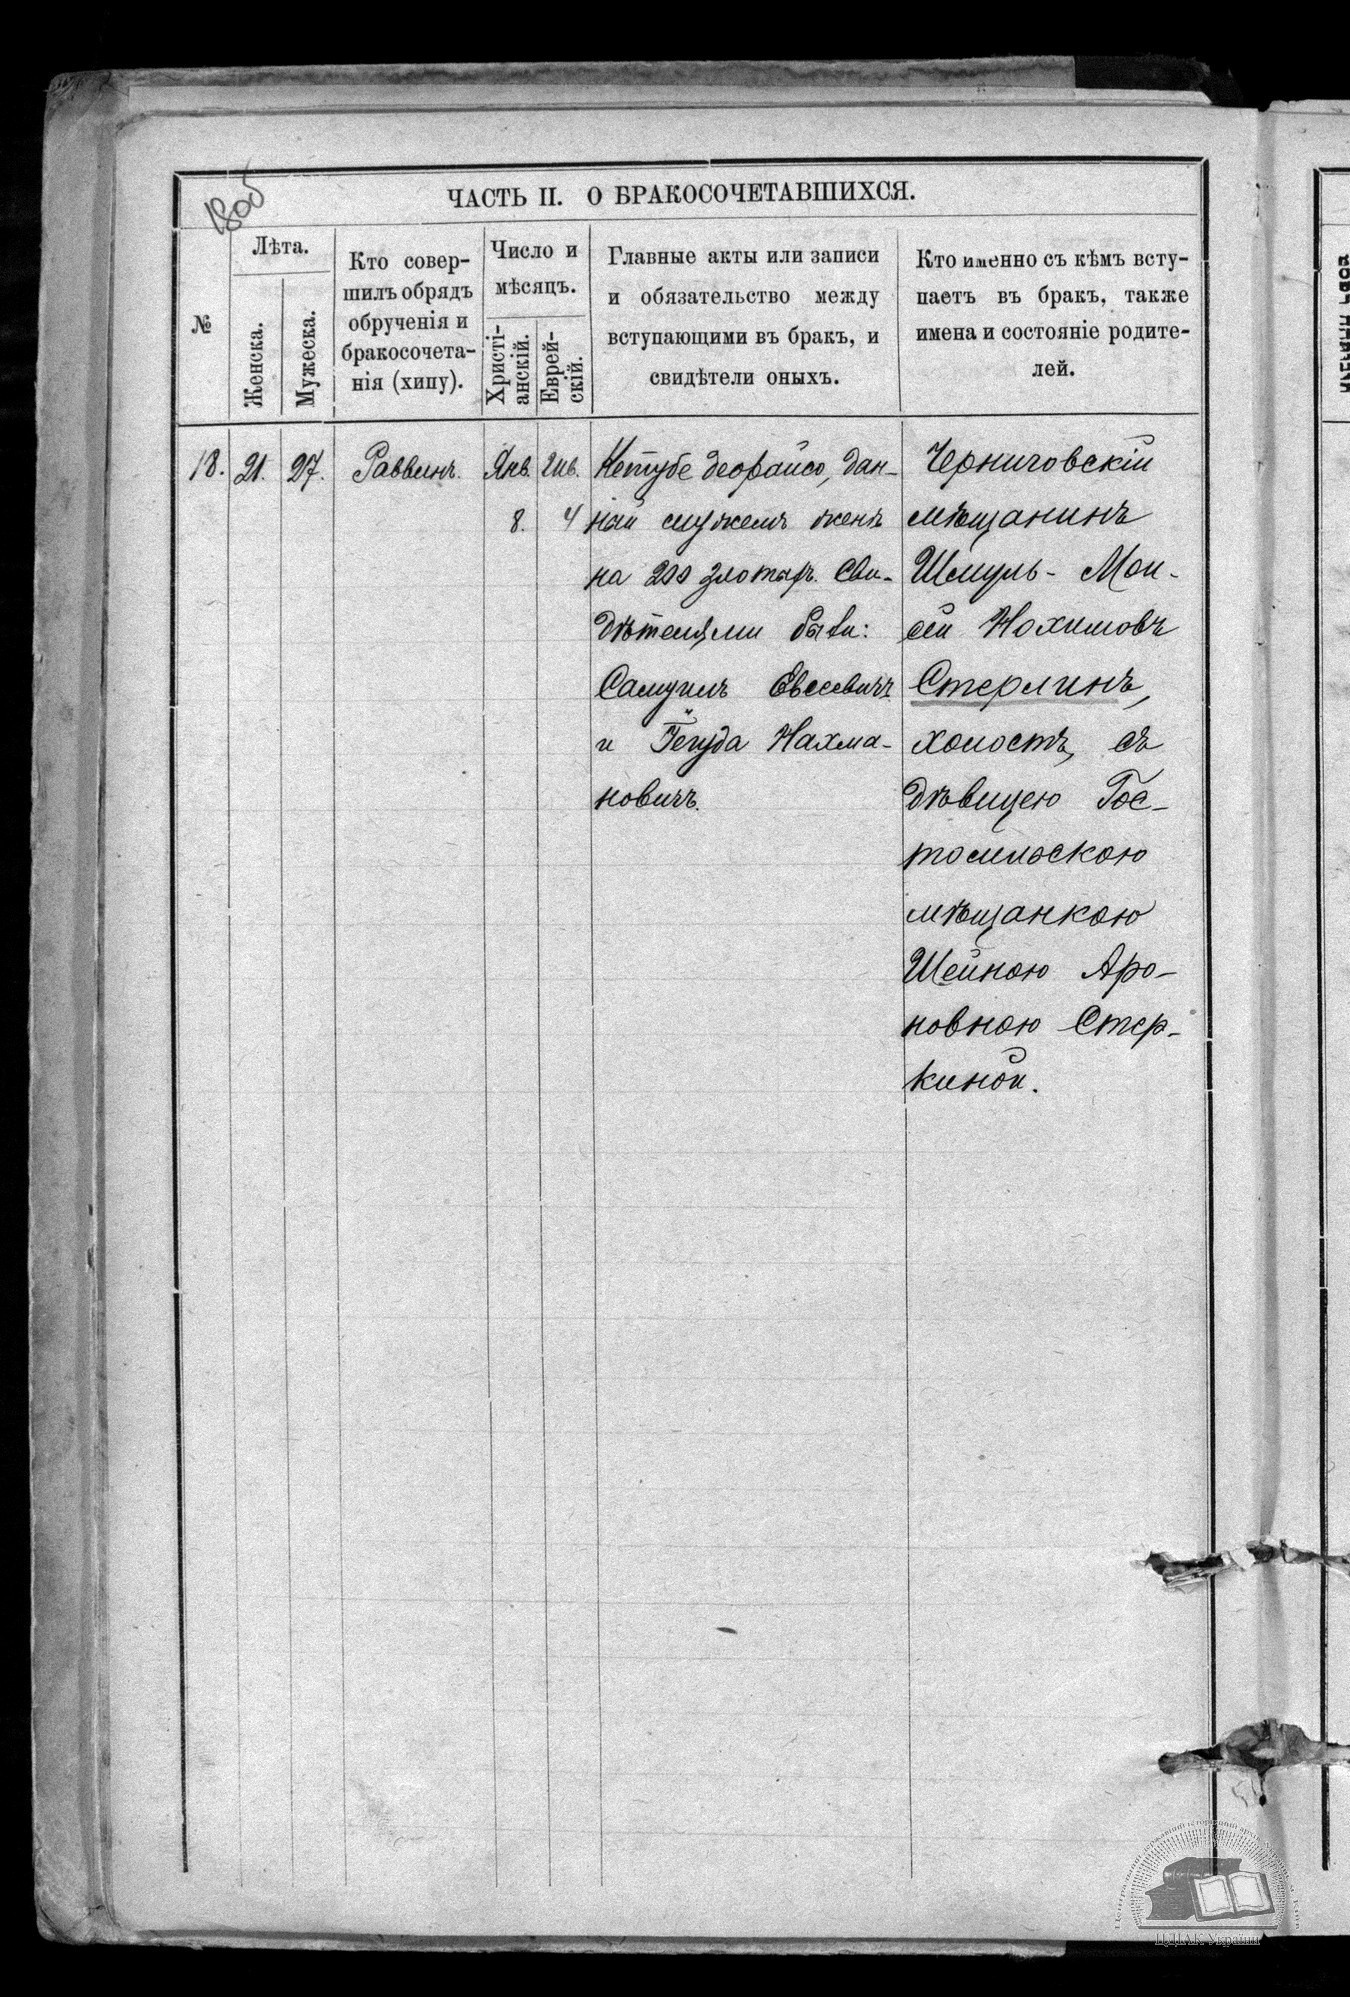 ЧАСТЬ II. О БРАКОСОЧЕТАВШИХСЯ.
№
Лѣта.
Женска.
Мужеска.
Кто совер-
шилъ обрядъ
обрученія и
бракосочета-
нія (хипу).
Число и
мѣсяцъ.
Христі-
анскій.
Еврей-
скій.
Главные акты или записи
и обязательство между
вступающими въ бракъ, и
свидѣтели оныхъ.
Кто именно съ кѣмъ всту-
паетъ въ бракъ, также
имена и состояніе родите-
лей.
18.
21.
27.
Раввинъ.
Янв.
8.
4
Кетубе деорайсо, дан-
ная мужемъ женѣ
на 200 злотыхъ. Сви-
дѣтелями были:
Самуилъ Евсеевичъ
и Іегуда Нахма-
новичъ.
Черниговскій
мѣщанинъ
Шмуль-Мои-
сей Нохимовъ
Стерлинъ,
холостъ, съ
дѣвицею Гос-
томльскою
мѣщанкою
Шейною Аро-
новною Стер-
киной.
ЦДІАК України